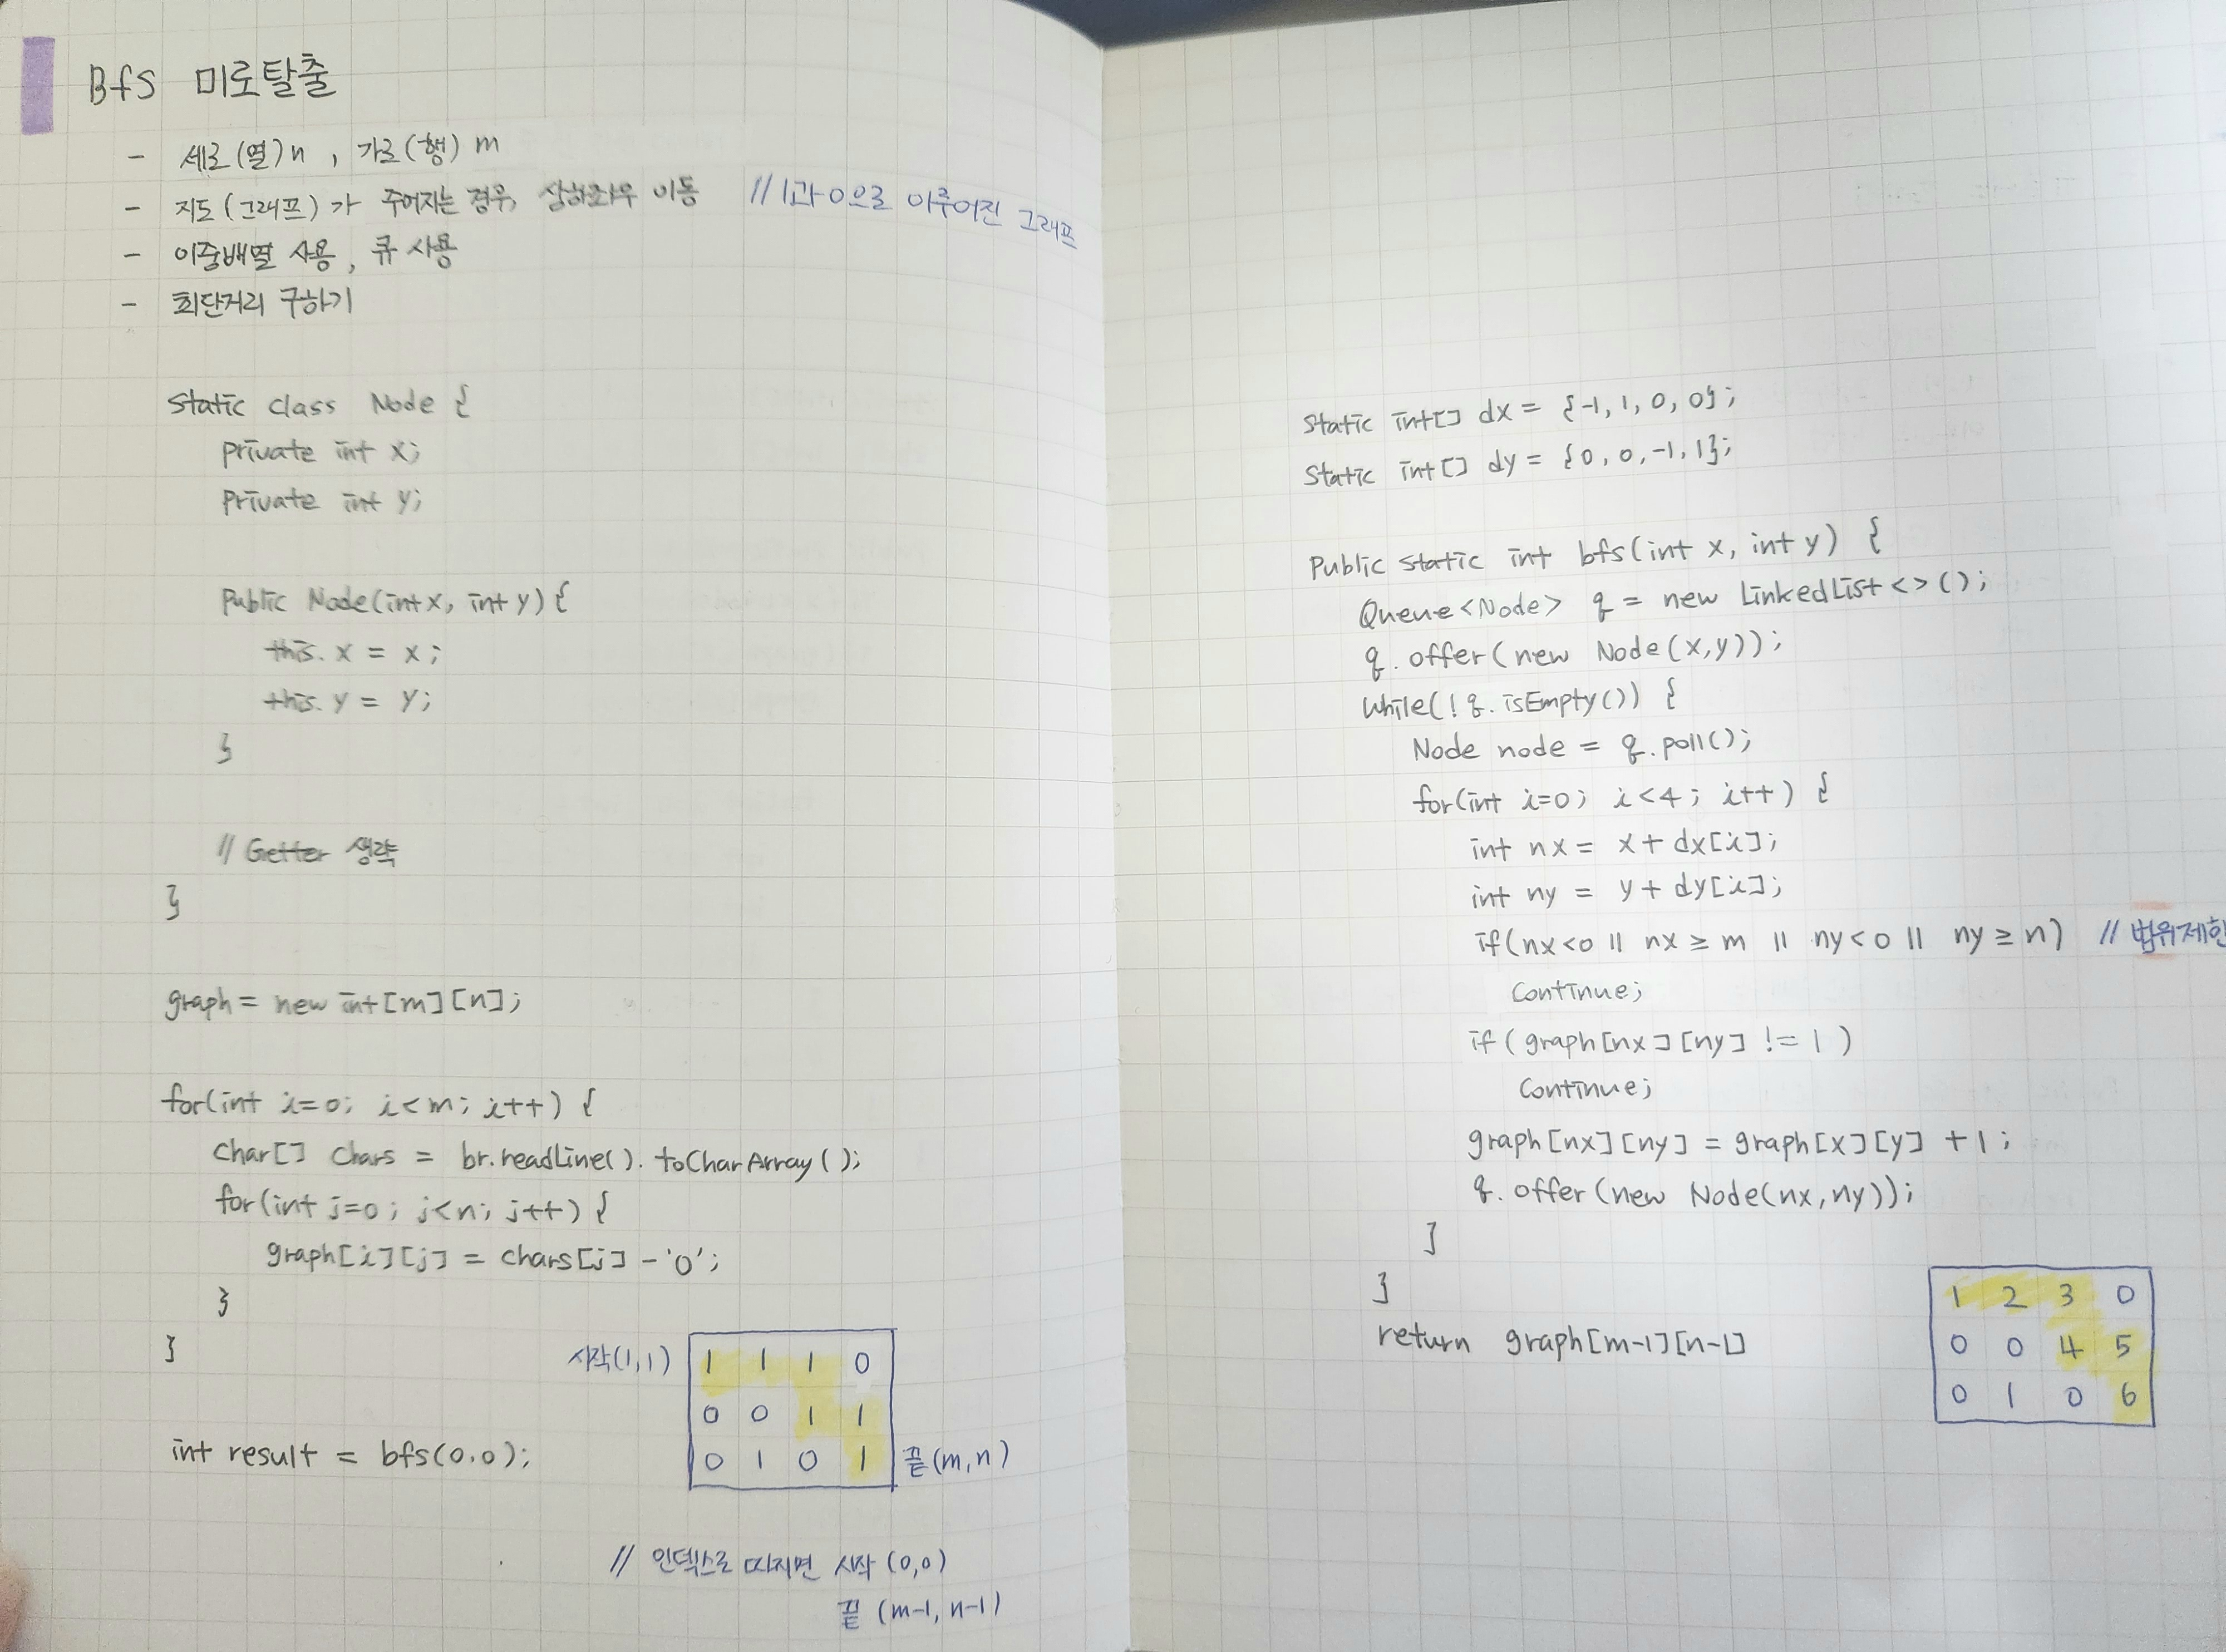 Bfs 미로탈출
- 세로(열) n , 가로(행) m
- 지도(그래프)가 주어지는 경우, 상하좌우 이동 // 1과 0으로 이루어진 그래프
- 이중배열 사용, 큐 사용
- 최단거리 구하기
Static class Node {
Private int x;
Private int y;
Public Node(int x, int y) {
this. x = x ;
this. y = y;
}
// Getter 생략
}
graph = new int[m][n];
for(int i=0; i<m; i++) {
Char[] Chars = br.readLine(). toCharArray();
for(int j=0; j<n; j++) {
graph[i][j] = chars[j] - '0';
}
}
int result = bfs(0,0);
시작(1,1)
1 1 1 0
0 0 1 1
0 1 0 1 끝(m,n)
// 인덱스로 따지면 시작 (0,0)
끝 (m-1, n-1)
Static int[] dx = {-1, 1, 0, 0};
Static int[] dy = {0, 0, -1, 1};
Public static int bfs(int x, int y) {
Queue<Node> q = new LinkedList<>();
q. offer(new Node(x,y));
While(!q. isEmpty()) {
Node node = q.poll();
for(int i=0; i<4; i++) {
int nx = x + dx[i];
int ny = y + dy[i];
if(nx<0 || nx ≥ m || ny<0 || ny ≥ n) // 범위제한
Continue;
if (graph[nx][ny] != 1)
Continue;
graph[nx][ny] = graph[x][y] +1;
q. offer(new Node(nx,ny));
}
}
return graph[m-1][n-1]
1 2 3 0
0 0 4 5
0 1 0 6